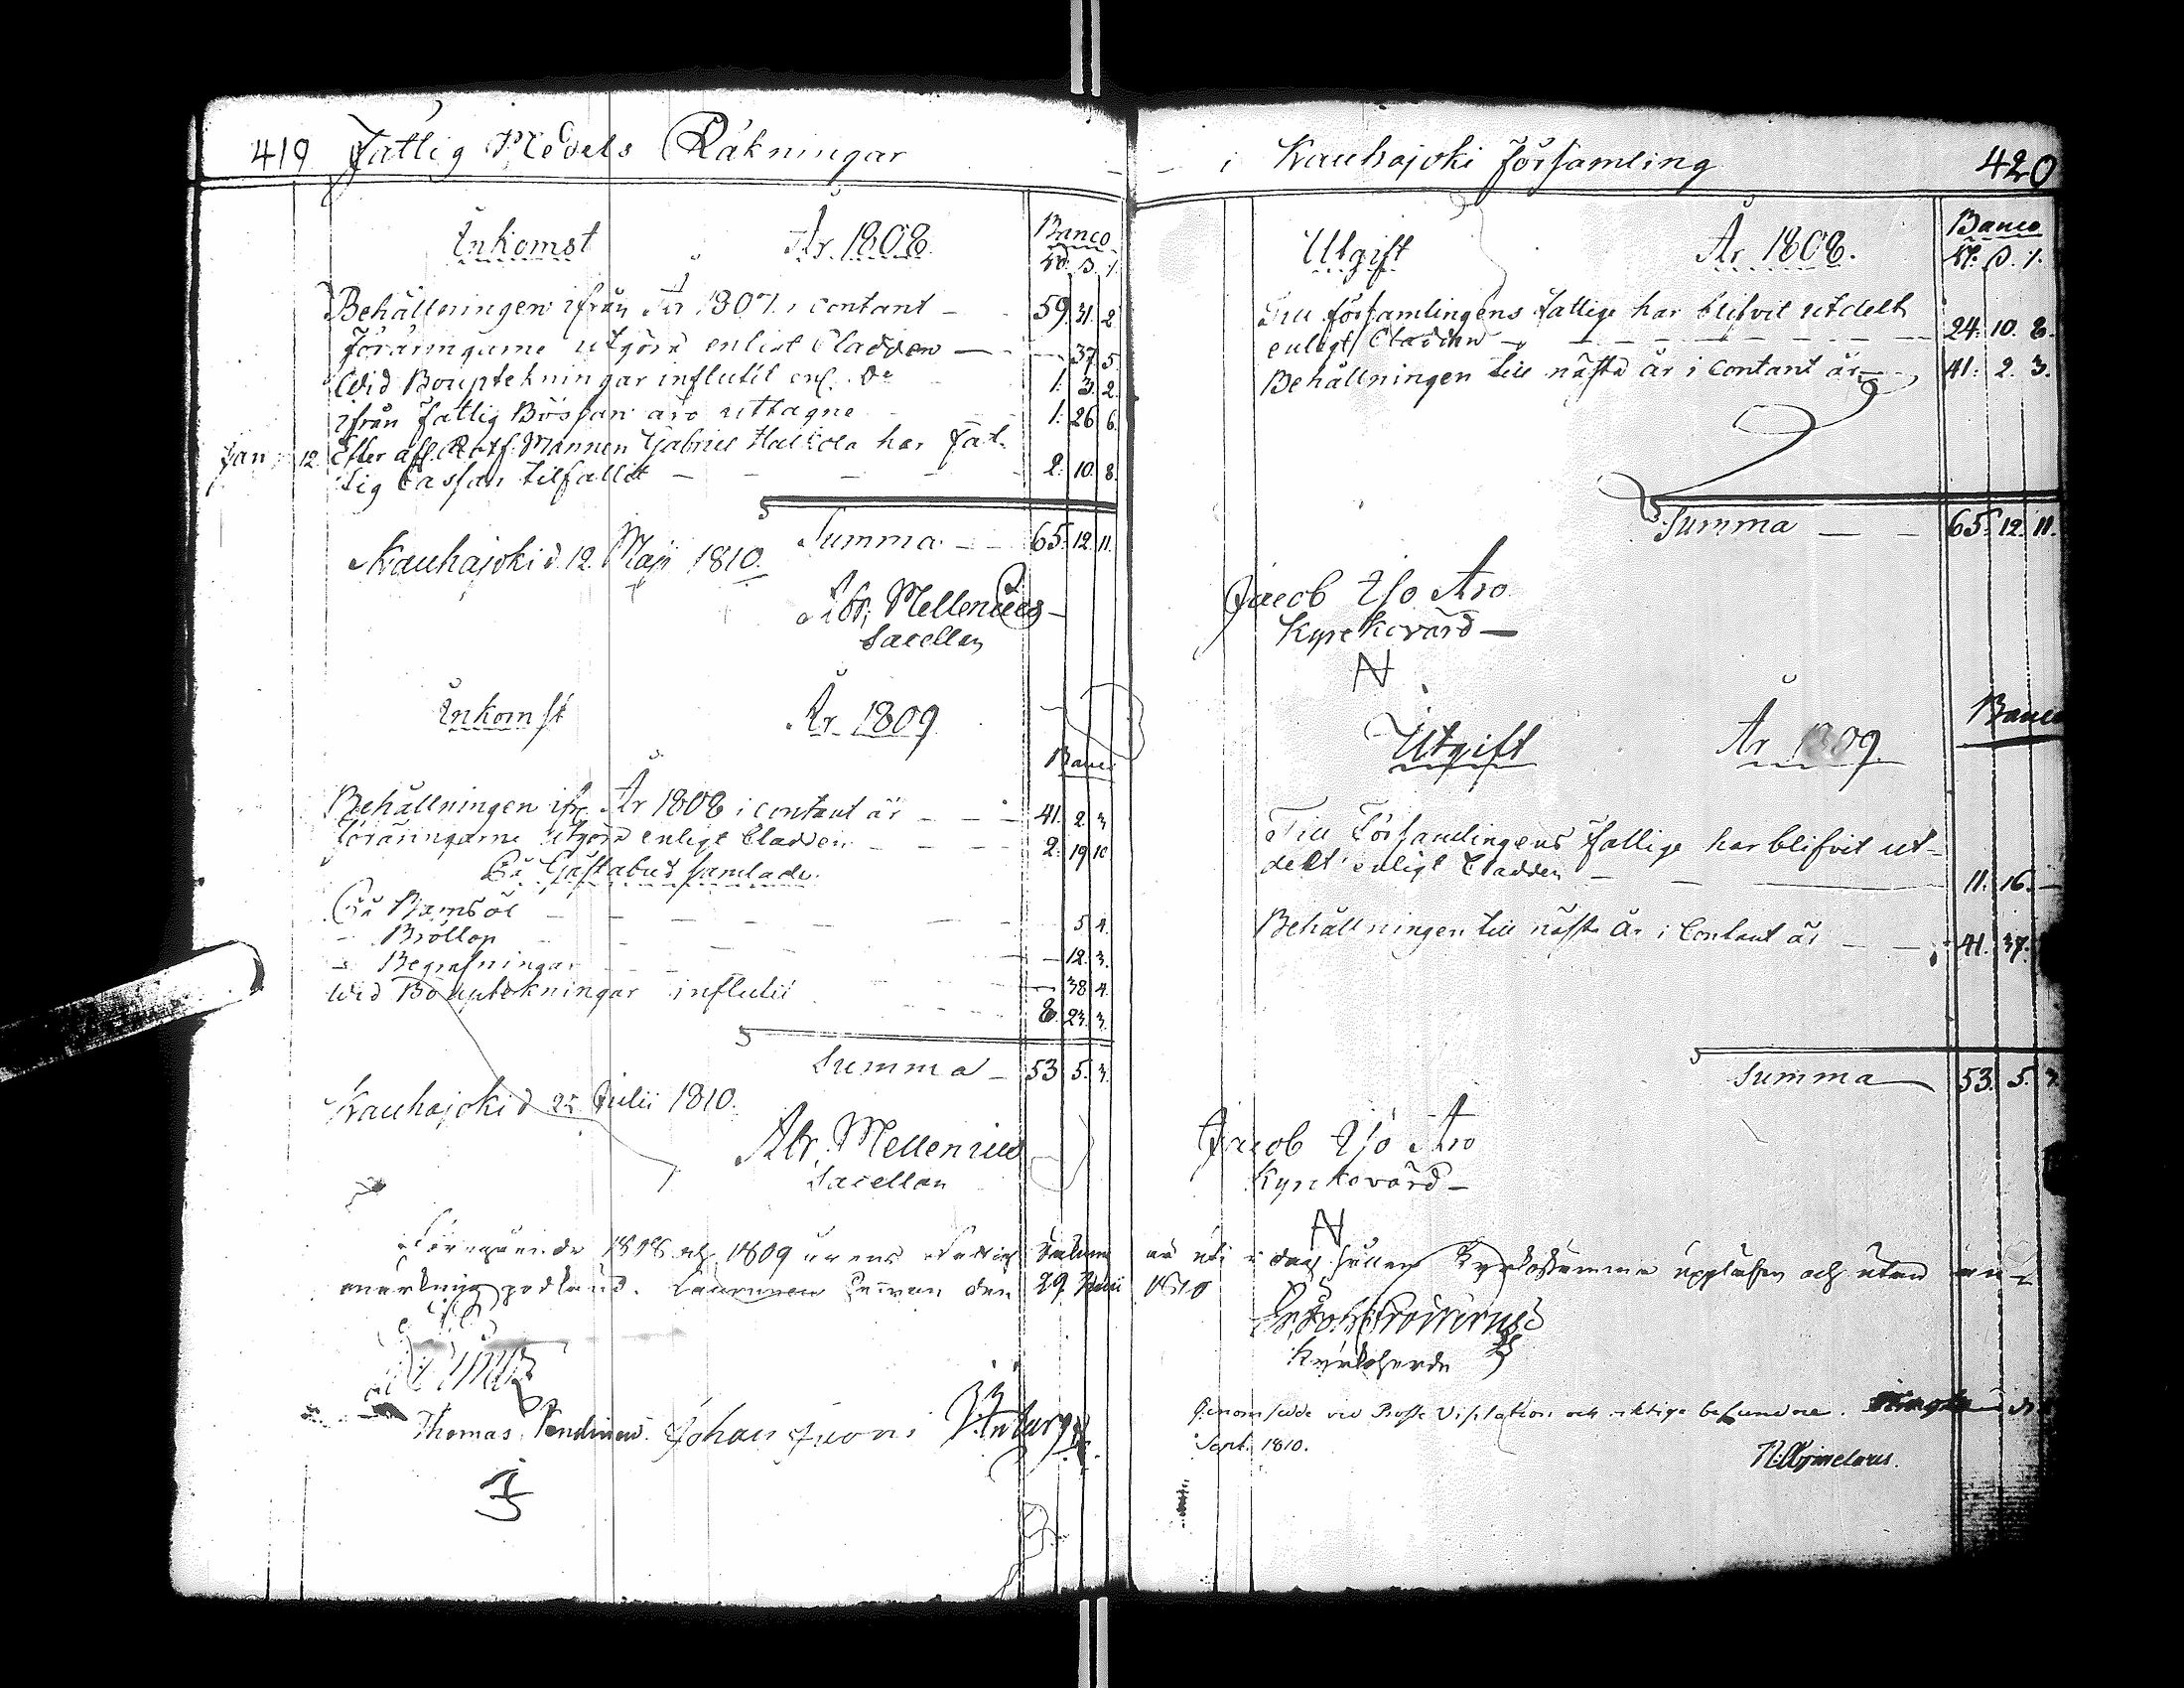 419 Fattig Medels Räkningar
Inkomst År 1808. Banco
Rd. s. r.
Behållningen ifrån År 1807 i contant — 59. 31. 2
Föräringarne utgöra enligt Cladden — 37. 5
Wid Bouptekningar influtit enl. Do 1. 3. 2.
ifrån Fattig Bössan äro uttagne 1. 26 6
Jan. 12. Efter afl. Mannen Gabriel Halkola har Fat-
tig Cassan tilfallit — — — 2. 10. 8.
Summa — 65. 12. 11.
Kauhajoki d. 12. Maji 1810.
Abr. Mellenius
Sacellan
Inkomst År 1809
Banco
Behållningen ifr. År 1808 i contant är — — 41. 2. 3
Föräringarne utgöra enligt Cladden — — 2. 19 10
På Gästabud samlade.
På Barnsöl — — — 5 4.
— Bröllop — — — 12. 3.
— Begrafningar — 38 4.
Wid Bouptekningar influtit — 8. 23. 3.
Summa — 53 5. 3.
Kauhajoki d. 25 Julii 1810.
Abr. Mellenius
Sacellan
Föregående 1808 och 1809 årens Fattig
anmärkning godkänd. den 29 Julii
Thomas Johan
i Kauhajoki Församling 420
Utgift År 1808. Banco
Rd. s. r.
Till församlingens fattige har blifvit utdelt
enligt Cladden — — — 24. 10. 8.
Behållningen till nästa år i contant är — 41. 2. 3.
Summa — — 65. 12. 11.
Jacob Aro
Kyrckovärd —
Utgift År 1809. Banco
Till Församlingens fattige har blifvit ut-
delt enligt Cladden — — 11. 16. —
Behållningen till nästa År i Contant är — — 41. 37.
Summa 53. 5.
Jacob Aro
Kyrckovärd —
uti i dag hållen Kyrkostämma uppläsen och utan an-
1810
Kyrkoherde
Genomsedde vid Visitation och riktige befundne.
Sept. 1810.